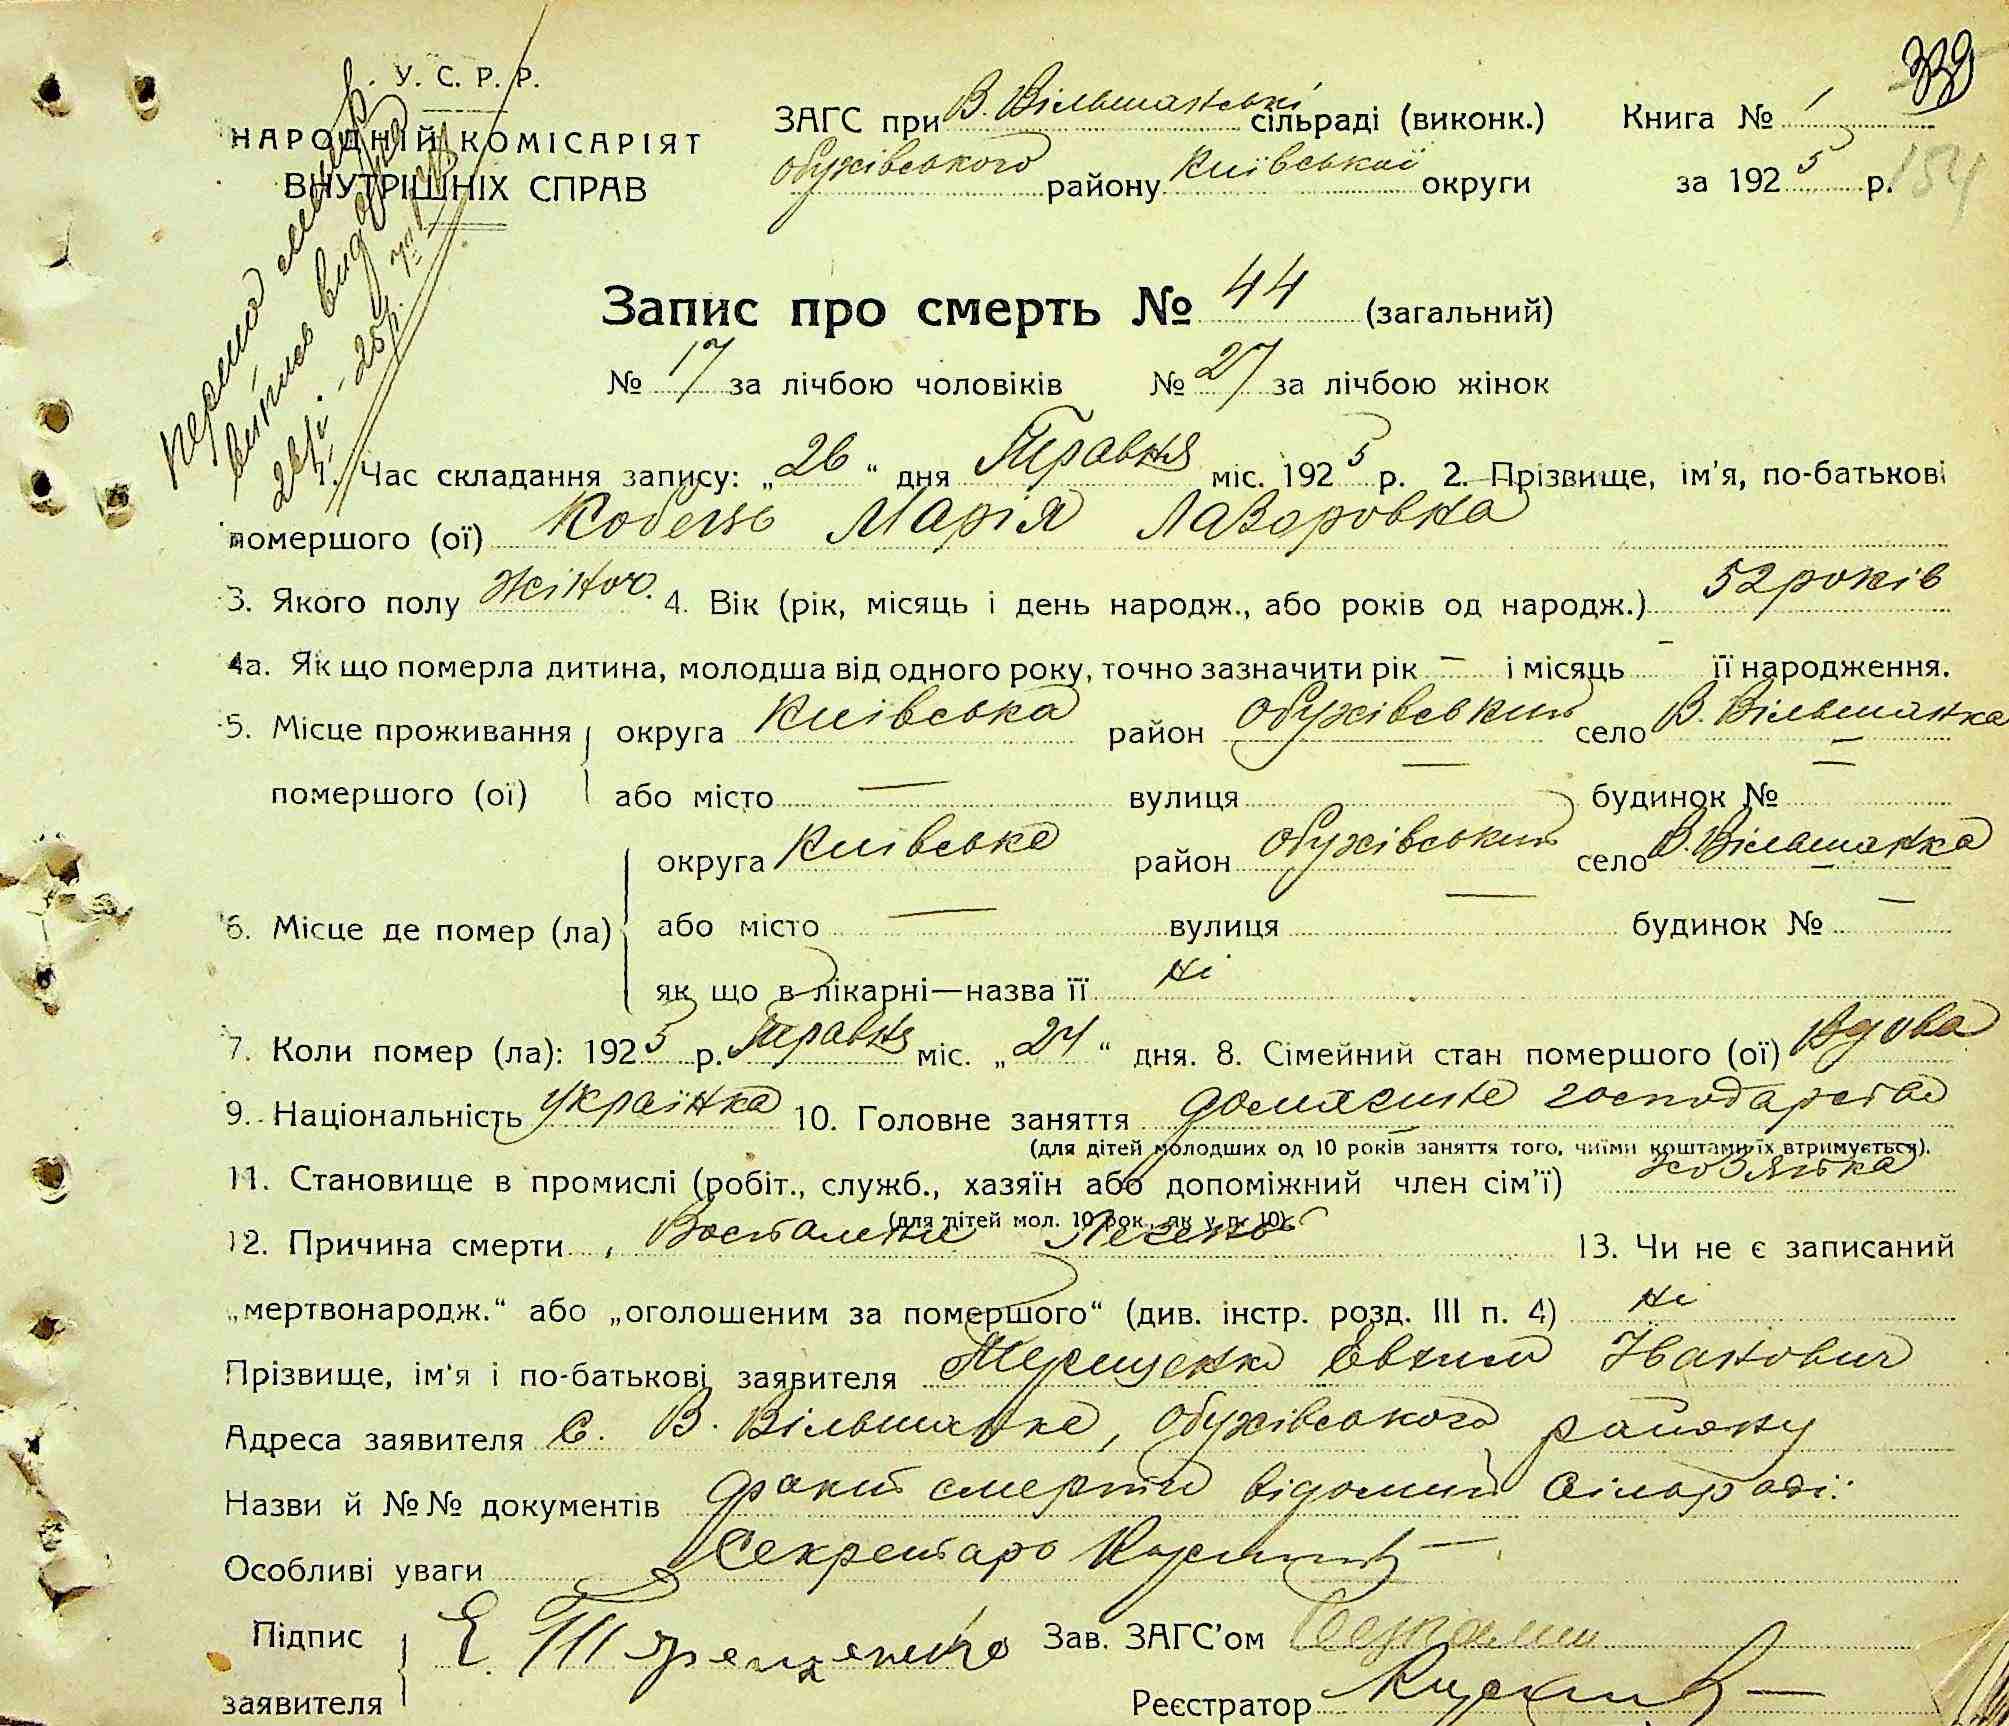 У. С. Р. Р.
НАРОДНІЙ КОМІСАРІЯТ
ВНУТРІШНІХ СПРАВ
перша
випись видана
ЗАГС при В. Вільшанській сільраді (виконк.)
Обухівського району Київської округи
Книга № 1
за 1925 р.
339
154
Запис про смерть № 44 (загальний)
№ 17 за лічбою чоловіків № 27 за лічбою жінок
1. Час складання запису: „26“ дня Травня міс. 1925 р. 2. Прізвище, ім'я, по-батькові
помершого (ої) Кобець Марія Лазоровна
3. Якого полу жіноч. 4. Вік (рік, місяць і день народж., або років од народж.) 52 років
4а. Як що померла дитина, молодша від одного року, точно зазначити рік — і місяць — її народження.
5. Місце проживання округа Київська район Обухівський село В. Вільшанка
помершого (ої) або місто — вулиця — будинок № —
округа Київська район Обухівський село В. Вільшанка
6. Місце де помер (ла) або місто — вулиця — будинок № —
як що в лікарні—назва її ні
7. Коли помер (ла): 1925 р. Травня міс. „24“ дня. 8. Сімейний стан помершого (ої) Вдова
9. Національність українка 10. Головне заняття домашнє господарство
(для дітей молодших од 10 років заняття того, чиїми коштами їх втримується).
11. Становище в промислі (робіт., служб., хазяїн або допоміжний член сім'ї) хозяйка
(для дітей мол. 10 рок., як у п. 10).
12. Причина смерти Воспаленіє Легень 13. Чи не є записаний
„мертвонародж.“ або „оголошеним за помершого“ (див. інстр. розд. III п. 4) ні
Прізвище, ім'я і по-батькові заявителя Терещенко Евхим Іванович
Адреса заявителя С. В. Вільшанка, Обухівського району
Назви й №№ документів факт смерти відомий сільраді:
Особливі уваги Секретарь
Підпис
заявителя Е. Терещенко
Зав. ЗАГС'ом
Реєстратор